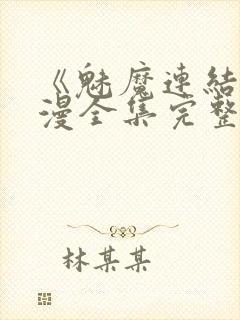 《魅魔連結
漫全集完整
林某某